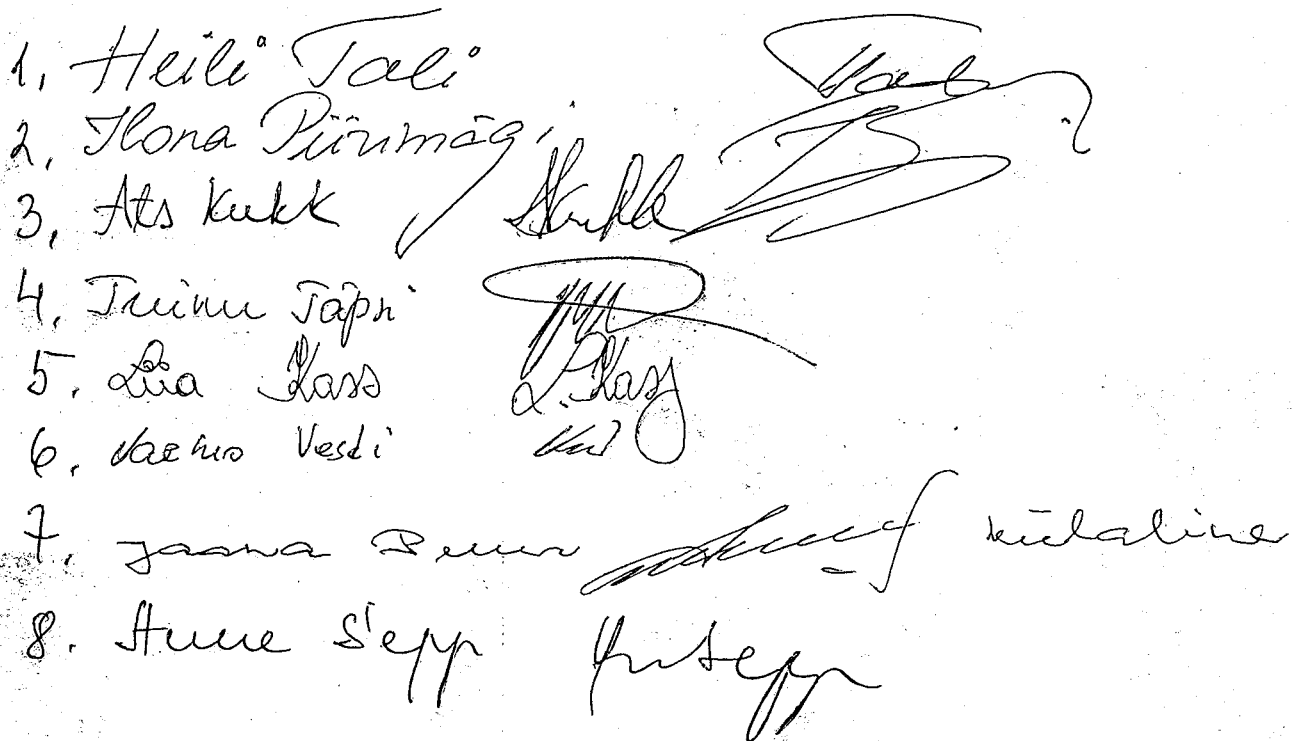 1, Heili Tali
2, Ilona Piirimägi
3, Ats Kukk
4, Triinu Täpsi
5. Liia Kass L.Kass
6. Vaino Vesti
7. Jaana külaline
8. Anne Sepp